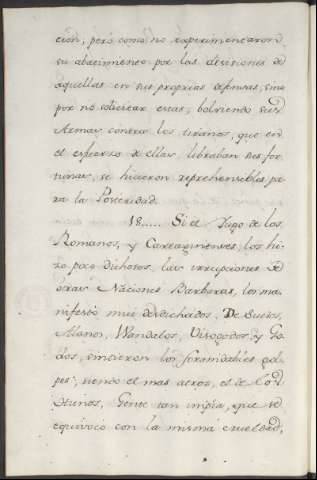 cion; pero como no experimentaron
su abatimento por las desiciones de
aquellas en sus proprias defensas, sino
por no solicitar estas, bolviendo sus
Armas contra los tiranos, que en
el esfuerzo de ellas, libraban ses for-
tunas, se hicieron reprehensibles pa-
ra la Posteridad.
18..... Si el Jugo de los
Romanos, y Cartaginenses, los hi-
zo poco dichosos, las irrupciones de
otras Naciones Barbaras, los ma-
nifestó mui desdichados. De Suevos,
Alanos, Wandalos, Visogodos, y Go-
dos, sintieron los formidables gol-
pes, siendo el mas atros, el de los
Hunos, Gente tan impia, que se
equivocó con la misma crueldad,